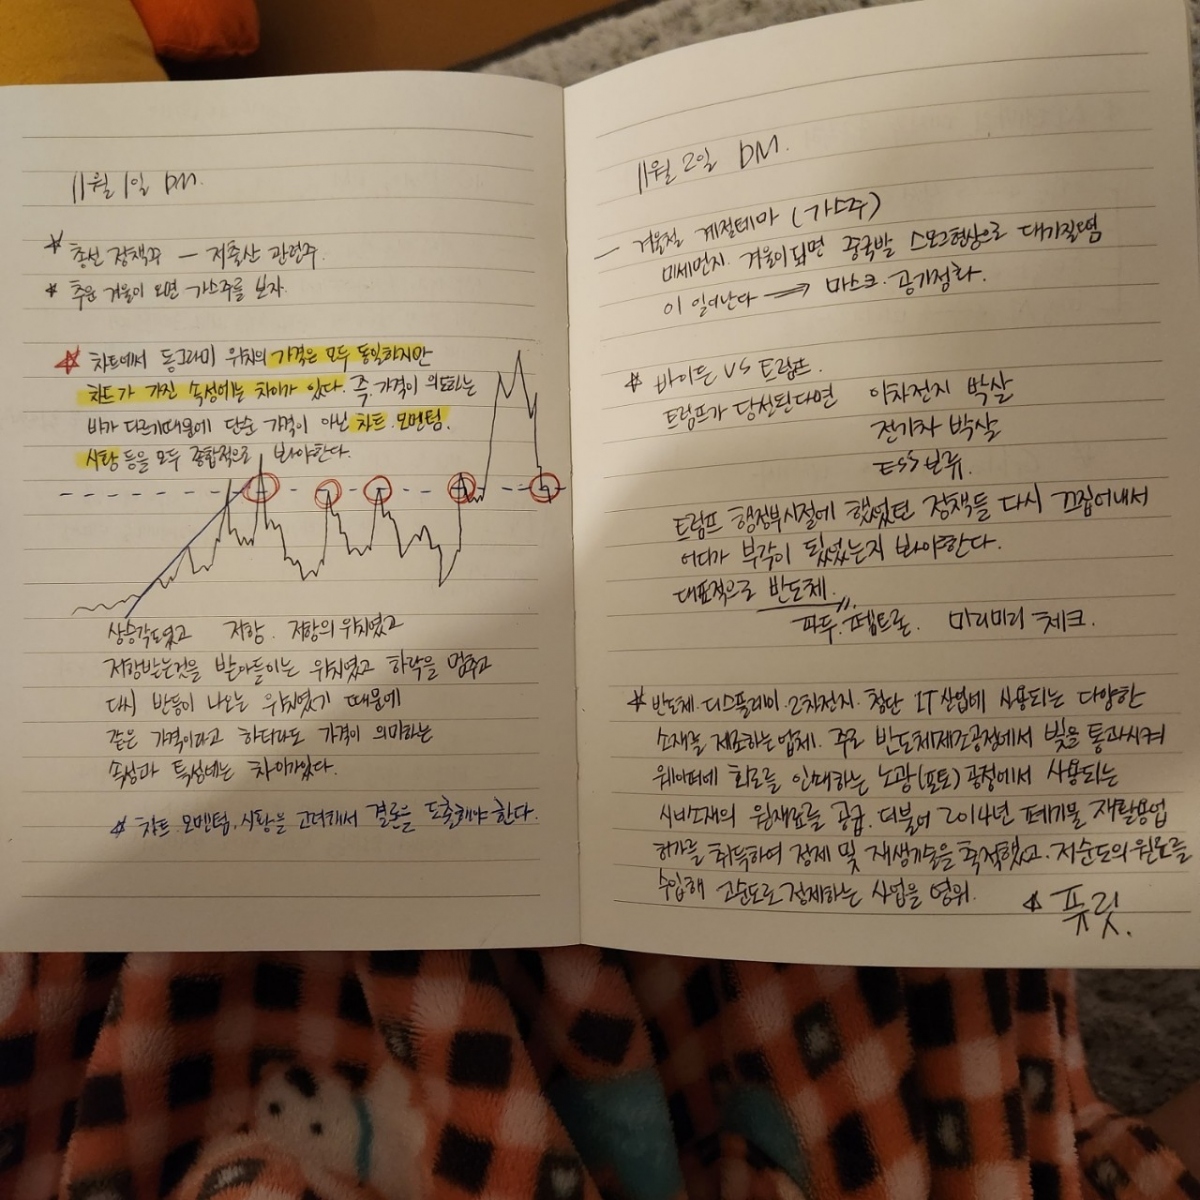 11월 1일 DM.
* 총선 정책주 — 저출산 관련주.
* 추운 겨울이 오면 가스주를 보자.
☆ 차트에서 동그라미 위치의 가격은 모두 동일하지만
차트가 가진 속성에는 차이가 있다. 즉, 가격이 의도하는
바가 다르기때문에 단순 가격이 아닌 차트. 모멘텀.
시황 등을 모두 종합적으로 봐야한다.
상승각도였고 저항. 저항의 위치였고
저항받는것을 받아들이는 위치였고 하락을 멈추고
다시 반등이 나오는 위치였기 때문에
같은 가격이라고 하더라도 가격이 의미하는
속성과 특성에는 차이가있다.
☆ 차트. 모멘텀, 시황을 고려해서 결론을 도출해야 한다.
11월 2일 DM.
— 겨울철 계절테마 (가스주)
미세먼지. 겨울이 되면 중국발 스모그현상으로 대기질오염
이 일어난다 → 마스크. 공기정화.
☆ 바이든 VS 트럼프.
트럼프가 당선된다면 이차전지 박살
전기차 박살
ESS 보류.
트럼프 행정부시절에 했었던 정책들 다시 끄집어내서
어디가 부각이 됬었는지 봐야한다.
대표적으로 반도체.
파두. 퀄리타스. 미리미리 체크.
☆ 반도체. 디스플레이. 2차전지. 첨단 IT 산업에 사용되는 다양한
소재를 제조하는 업체. 주로 반도체제조공정에서 빛을 통과시켜
웨이퍼에 회로를 인쇄하는 노광(포토) 공정에서 사용되는
시너소재의 원재료를 공급. 더불어 2014년 폐기물 재활용업
허가를 취득하여 정제 및 재생기술을 축적했고. 저순도의 원료를
수입해 고순도로 정제하는 사업을 영위.
☆ 퓨릿.